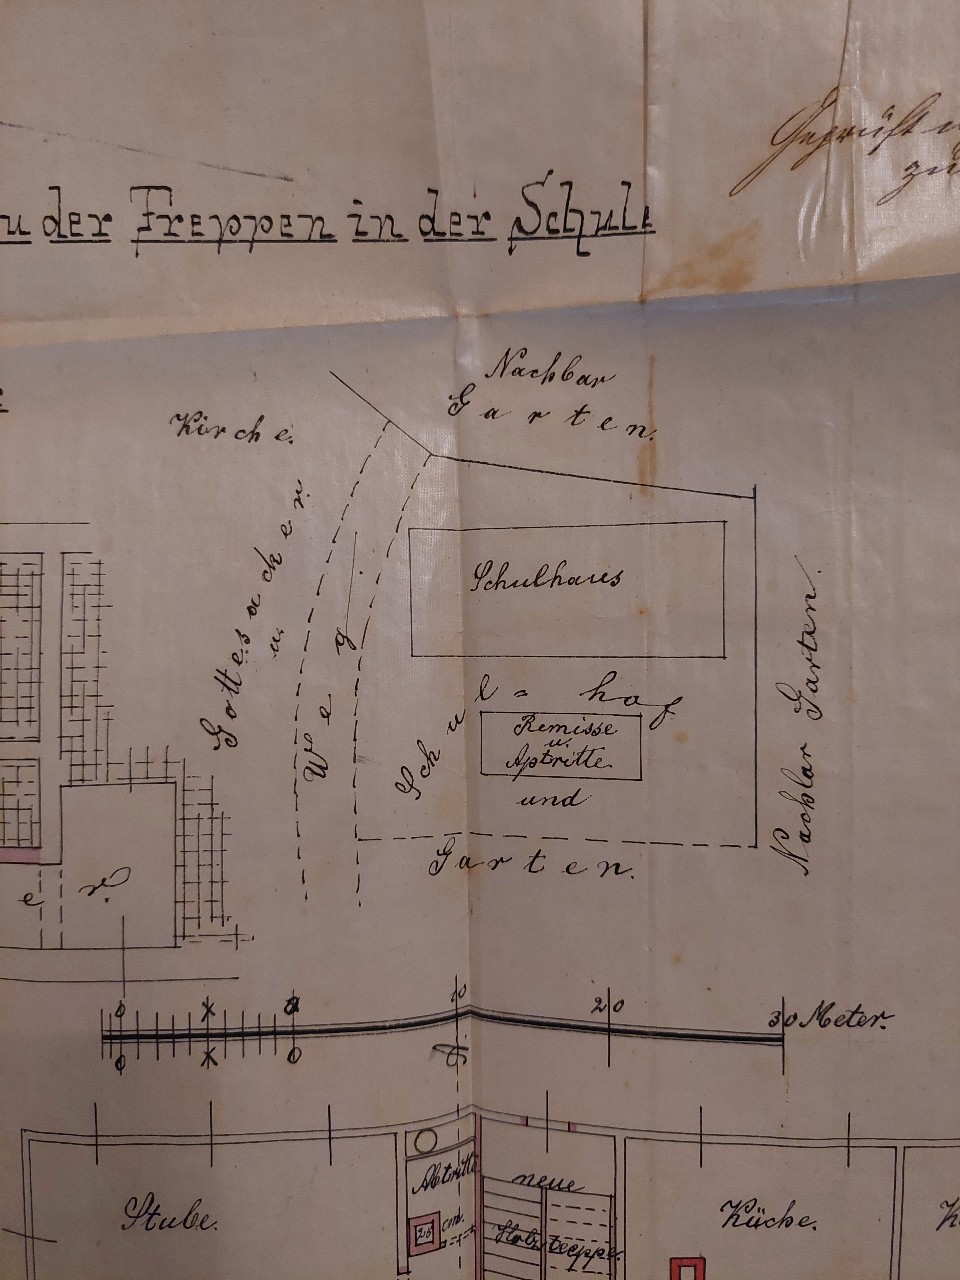 Geprüft
zu
u der Treppen in der Schule
Nachbar
Garten.
Kirche.
u.
Gottesacker
Weg.
Schulhaus
Schul=hof
Remisse
u.
Aptritte.
und
Garten.
Nachbar Garten.
e r.
0 10 20 30 Meter.
Abtritte
neue
Stube.
Küche.
Holztreppe.